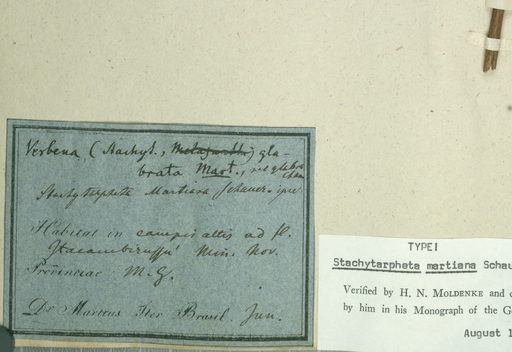 Verbena (Stachyt., ) gla-
brata Mart.,
Stachytarpheta Martiana Schauer ipse
Habitat in campis altis ad fl.
Itacambirussú Min. Nov.
Provinciae M. G.
Dr Martius Iter Brasil. Jun.
TYPE!
Stachytarpheta martiana Schau
Verified by H. N. MOLDENKE and c
by him in his Monograph of the G
August 1